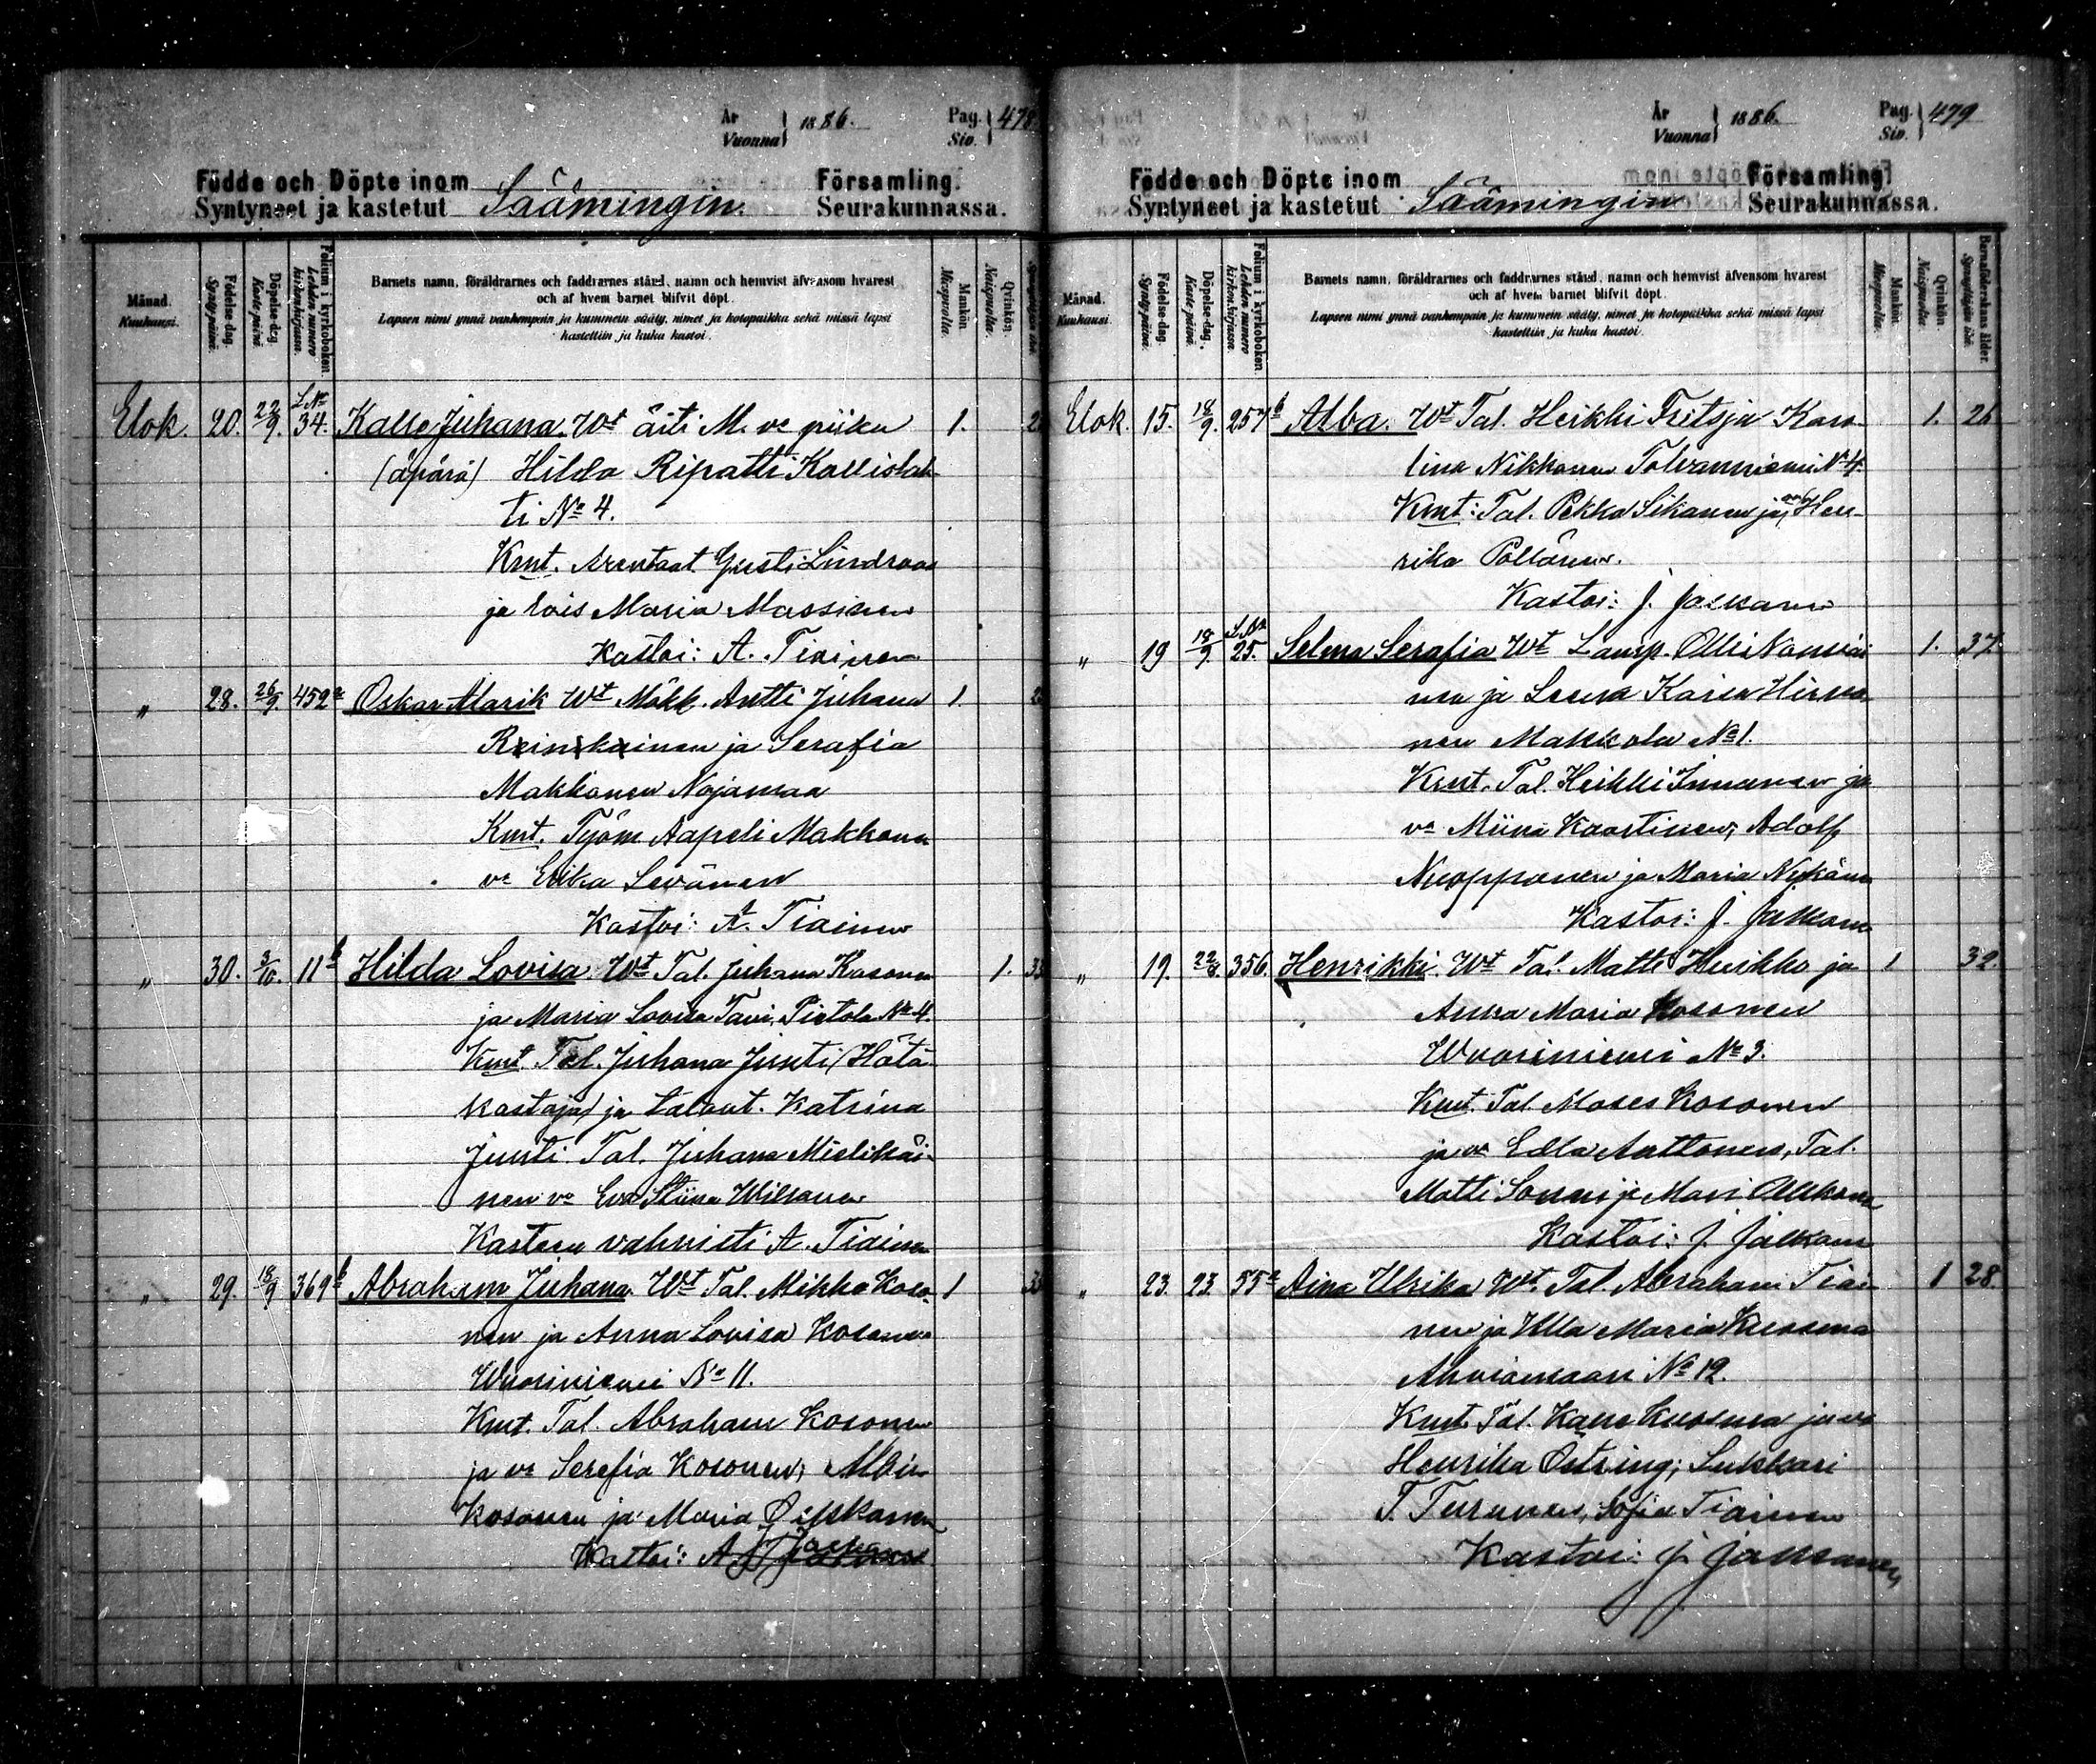 År
Vuonna } 1886.
Pag.
Siv. } 478
Födde och Döpte inom
Syntyneet ja kastetut Säämingin
Församling.
Seurakunnassa.
Månad.
Kuukausi.
Födelse-dag.
Synty-päivä.
Döpelse-dag.
Kaste-päivä.
Folium i kyrkoboken.
Lehden numero kirkonkirjassa.
Barnets namn, föräldrarnes och faddrarnes stånd, namn och hemvist äfvensom hvarest
och af hvem barnet blifvit döpt.
Lapsen nimi ynnä vanhempain ja kummein sääty, nimet ja kotopaikka sekä missä lapsi
kastettiin ja kuka kastoi.
Mankön
Miespuolia.
Qvinkön.
Naispuolia.
Elok. 20. 22/9. L.No 34. Kalle Juhana. Wt äiti M. va piika 1.
(äpärä) Hilda Ripatti Kallislah-
ti No 4.
Kmt. Arentaat. Gusti Lindroos
ja lois Maria Massinen
Kastoi: A. Tiainen
" 28. 26/9. 452a Oskar Alarik Wt Mökk. Antti Juhana 1.
Reinikainen ja Serafia
Makkonen Nojanmaa
Kmt. Työm Aapeli Makkonen
va Erika Sevänen
Kastoi: A. Tiainen
" 30. 3/10. 11b Hilda Lovisa. Wt Tal. Juhana Kosonen 1. 33
ja Maria Lovisa Tavi, Pietola No 4.
Kmt. Tal. Juhana Junti (Hätä-
kastaja) ja talont. Katrina
Junti. Tal. Juhana Mielikäi-
nen va Eva Stiina
Kasteen vahvisti A. Tiainen
" 29. 18/9 369b Abraham Juhana. Wt Tal. Mikko Koso- 1 33
nen ja Anna Lovisa Kosonen
Wuoriniemi No 11.
Kmt. Tal. Abraham Kosonen
ja va Serefia Kosonen, Albin
Kosonen ja Maria
Kastoi: A
År
Vuonna } 1886.
Pag.
Siv. } 479
Födde och Döpte inom
Syntyneet ja kastetut Säämingin
Församling
Seurakunnassa.
Månad.
Kuukausi.
Födelse-dag.
Synty-päivä.
Döpelse-dag.
Kaste-päivä.
Folium i kyrkoboken.
Lehden numero kirkon kirjassa.
Barnets namn, föräldrarnes och faddrarnes stånd, namn och hemvist äfvensom hvarest
och af hvem barnet blifvit döpt.
Lapsen nimi ynnä vanhempain ja kummein sääty, nimet ja kotopaikka sekä missä lapsi
kastettiin ja kuka kastoi.
Mankön
Miespuolia.
Qvinkön.
Naispuolia
Barnaföderskans ålder.
Synnyttäjän ikä.
Elok. 15. 18/9. 257b Alba. Wt Tal. Heikki Frits ja Karo- 1. 26
lina Nikkonen Tolvanniemi No 4.
Kmt: Tal. Pekka Sikanen ja va Hen-
rika Pöllänen.
Kastoi: J. Jalkanen
" 19 18/9. L.No 25. Selma Serafia Wt Lamp. Olli Nousiai 1. 37.
nen ja Leena Kaisa Hirvo-
nen Makkola No 1.
Kmt. Tal. Heikki Immonen ja
va Miina Kaartinen, Adolf
Nuopponen ja Maria Nykänen
Kastoi: J. Jalkanen
" 19. 22/8. 356. Henrikki. Wt Tal. Matti Huikko ja 1 32.
Anna Maria Kosonen
Wuoriniemi No 3.
Kmt. Tal. Moses Kosonen
ja va Edla Anttonen, Tal.
Matti Sonni ja Mari
Kastoi: J. Jalkanen
" 23. 23. 55a Aina Ulrika Wt. Tal. Abraham Tiai- 1 28.
nen ja Ulla Maria Kuosma
Ahvionsaari No 12.
Kmt. Tal. Kalle Kuosma ja va
Henrika Östring; Lukkari
T. Turunen, Sofia Tiainen
Kastoi: J. Jalkanen